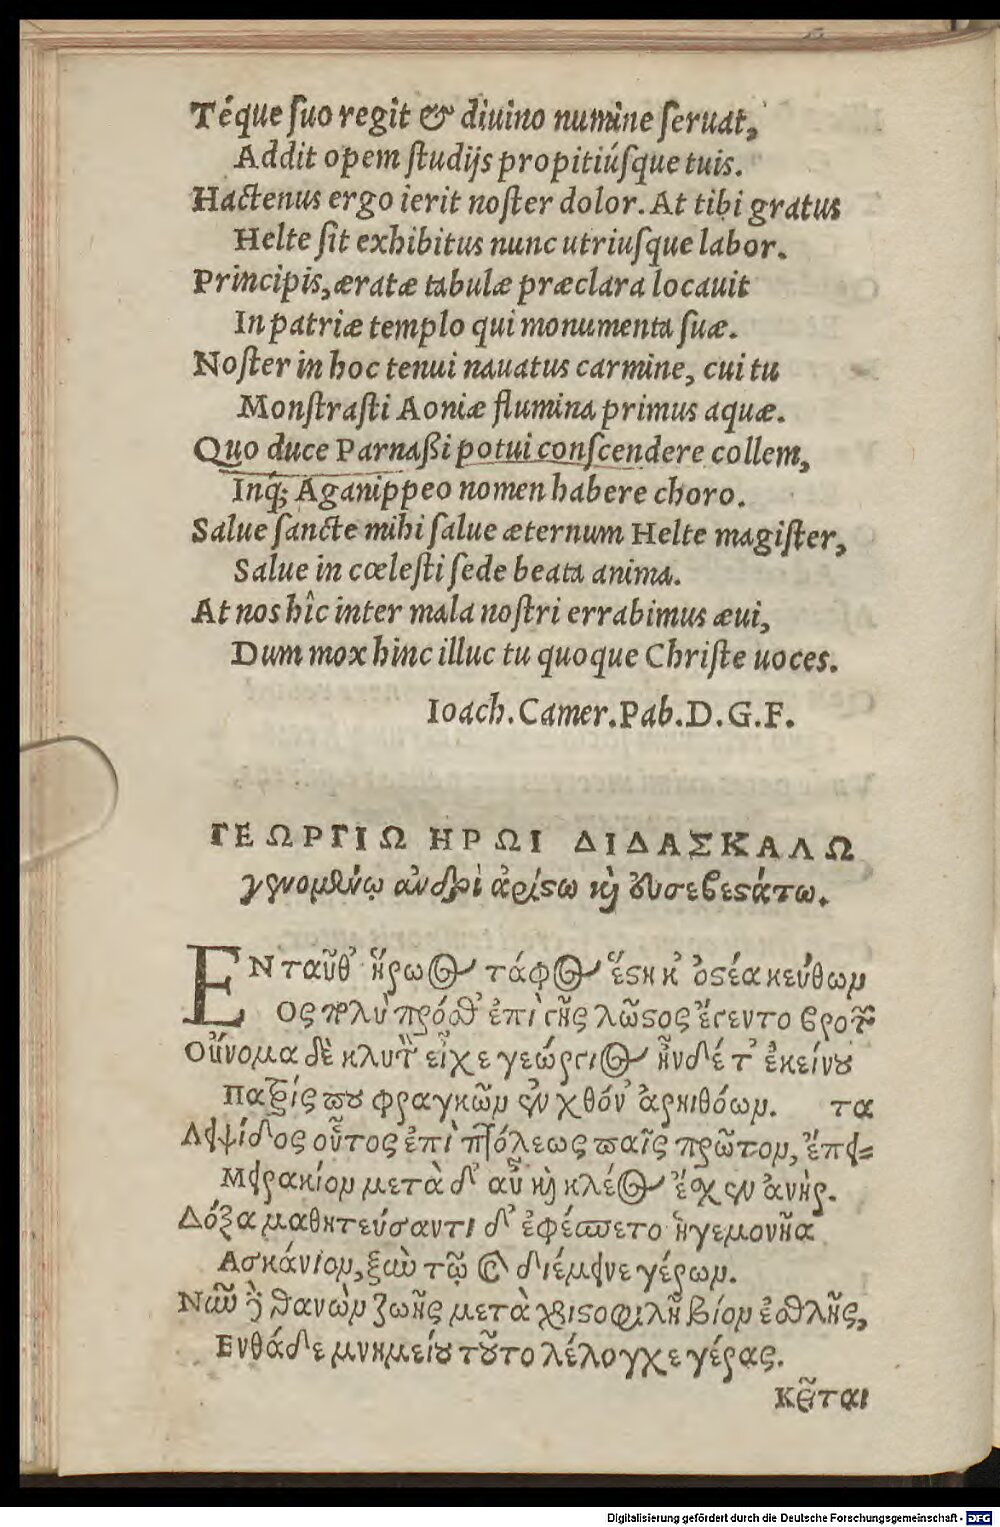 Téque ſuo regit & diuino numine ſeruat,
Addit opem ſtudijs propitiúſque tuis.
Hactenus ergo ierit noſter dolor. At tibi gratus
Helte ſit exhibitus nunc utriuſque labor.
Principis, æratæ tabulæ præclara locauit
In patriæ templo qui monumenta ſuæ.
Noſter in hoc tenui nauatus carmine, cui tu
Monſtraſti Aoniæ flumina primus aquæ.
Quo duce Parnaßi potui conſcendere collem,
Inq; Aganippeo nomen habere choro.
Salue ſancte mihi ſalue æternum Helte magiſter,
Salue in cœleſti ſede beata anima.
At nos hîc inter mala noſtri errabimus æui,
Dum mox hinc illuc tu quoque Chriſte uoces.
Ioach. Camer. Pab. D. G. F.
ΓΕΩΡΓΙΩ ΗΡΩΙ ΔΙΔΑΣΚΑΛΩ
γενομένῳ ἀνδρὶ ἀρίστω καὶ εὐσεβεστάτω.
Ενταῦθ' ἥρωος τάφος ἔστι κ' ὀστέα κεύθων
Ος πολὺ πρόσθ' ἐπὶ γῆς λῶστος ἔγεντο βροτῶν
Οὔνομα δὲ κλυτὸν εἶχε γεώργιος ἦν δέ τ' ἐκείνου
Πατρίς που φραγκῶν ἐν χθόν' ἀρηιθόων. τα
Λειψίδος οὗτος ἐπὶ πτόλεως παῖς πρῶτον, ἔπει=
Μειρακίον μετὰ δ' αὖ καὶ κλέος ἔσχεν ἀνήρ.
Δόξα μαθητεύσαντι δ' ἐφέσπετο ἡγεμονῆα
Ασκάνιον, ξὺν τῷ καὶ διέμεινε γέρων.
Νῶν δὲ θανὼν ζωῆς μετὰ χριστοφιλῆ βίον ἐσθλῆς,
Ενθάδε μνημείου τοῦτο λέλογχε γέρας.
Κεῖται
Digitalisierung gefördert durch die Deutsche Forschungsgemeinschaft - DFG